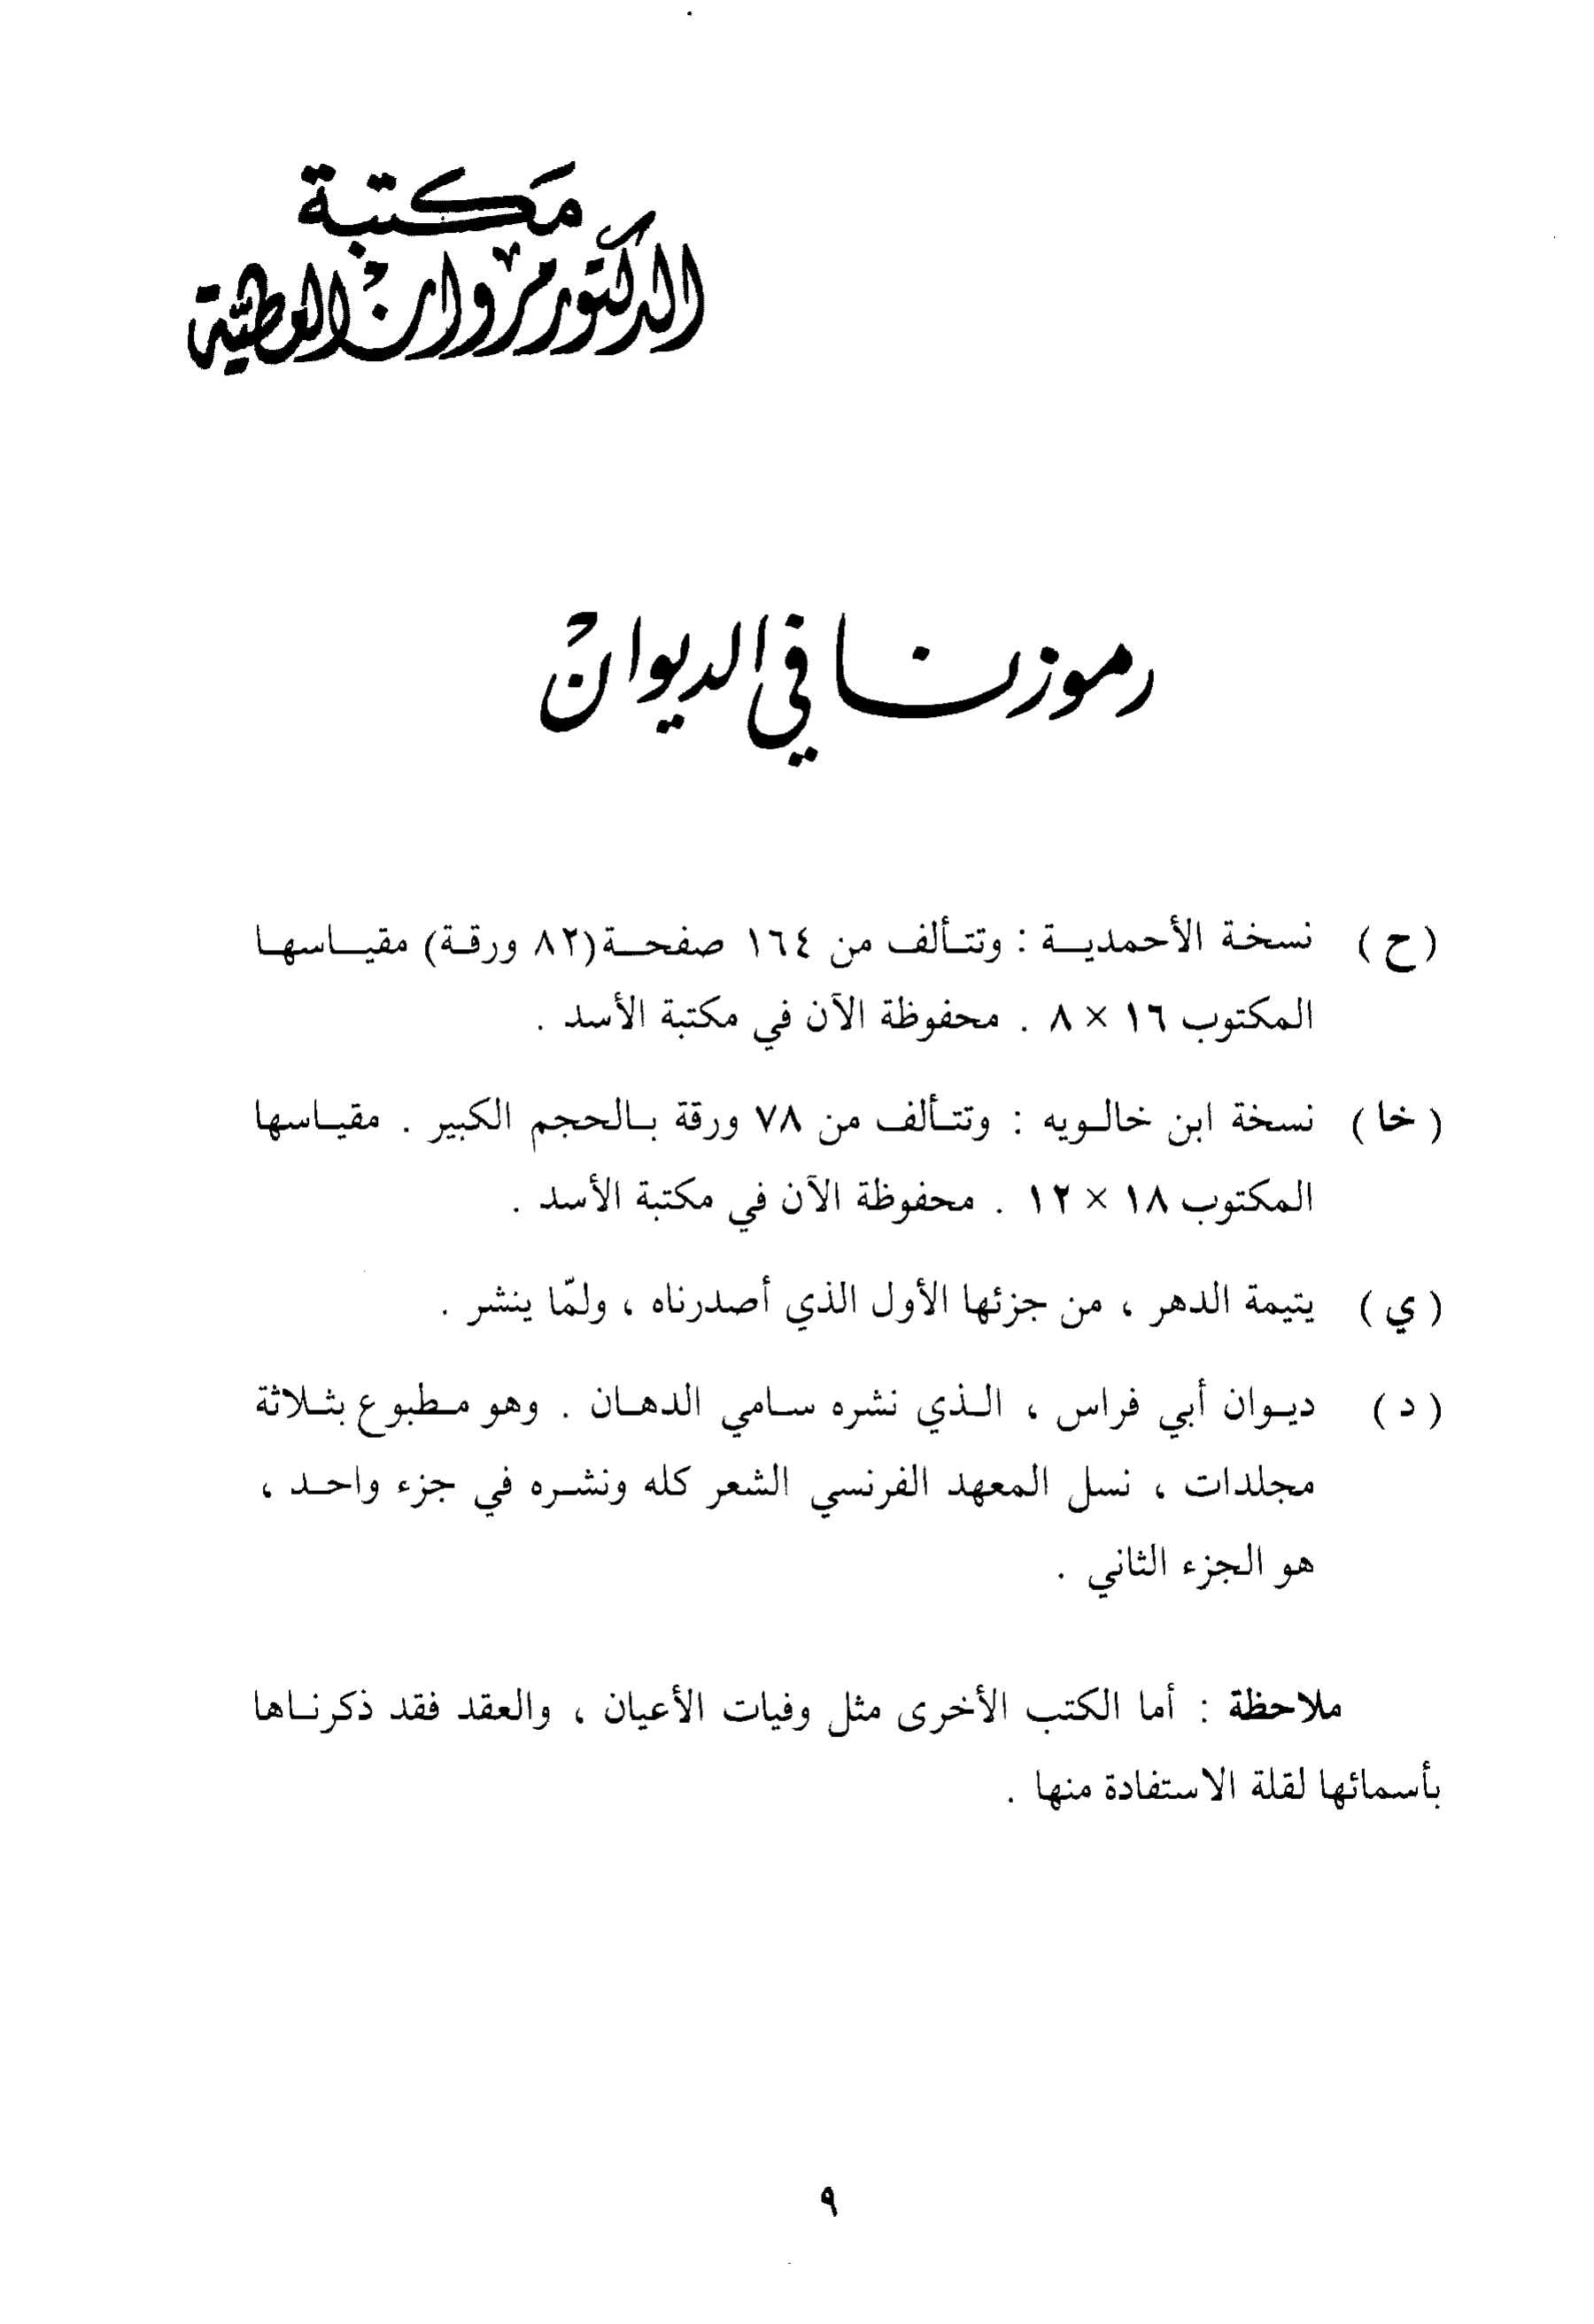 مكتبة
الدكتور مروان العطية
رموزنا في الديوان
(ح) نسخة الأحمدية : وتتألف من ١٦٤ صفحة (٨٢ ورقة) مقياسها
المكتوب ١٦ × ٨ . محفوظة الآن في مكتبة الأسد .
(خا) نسخة ابن خالويه : وتتألف من ٧٨ ورقة بالحجم الكبير . مقياسها
المكتوب ١٨ × ١٢ . محفوظة الآن في مكتبة الأسد .
(ي) يتيمة الدهر ، من جزئها الأول الذي أصدرناه ، ولمّا ينشر .
(د) ديوان أبي فراس ، الذي نشره سامي الدهان . وهو مطبوع بثلاثة
مجلدات ، نسل المعهد الفرنسي الشعر كله ونشره في جزء واحد ،
هو الجزء الثاني .
ملاحظة : أما الكتب الأخرى مثل وفيات الأعيان ، والعقد فقد ذكرناها
بأسمائها لقلة الاستفادة منها .
٩